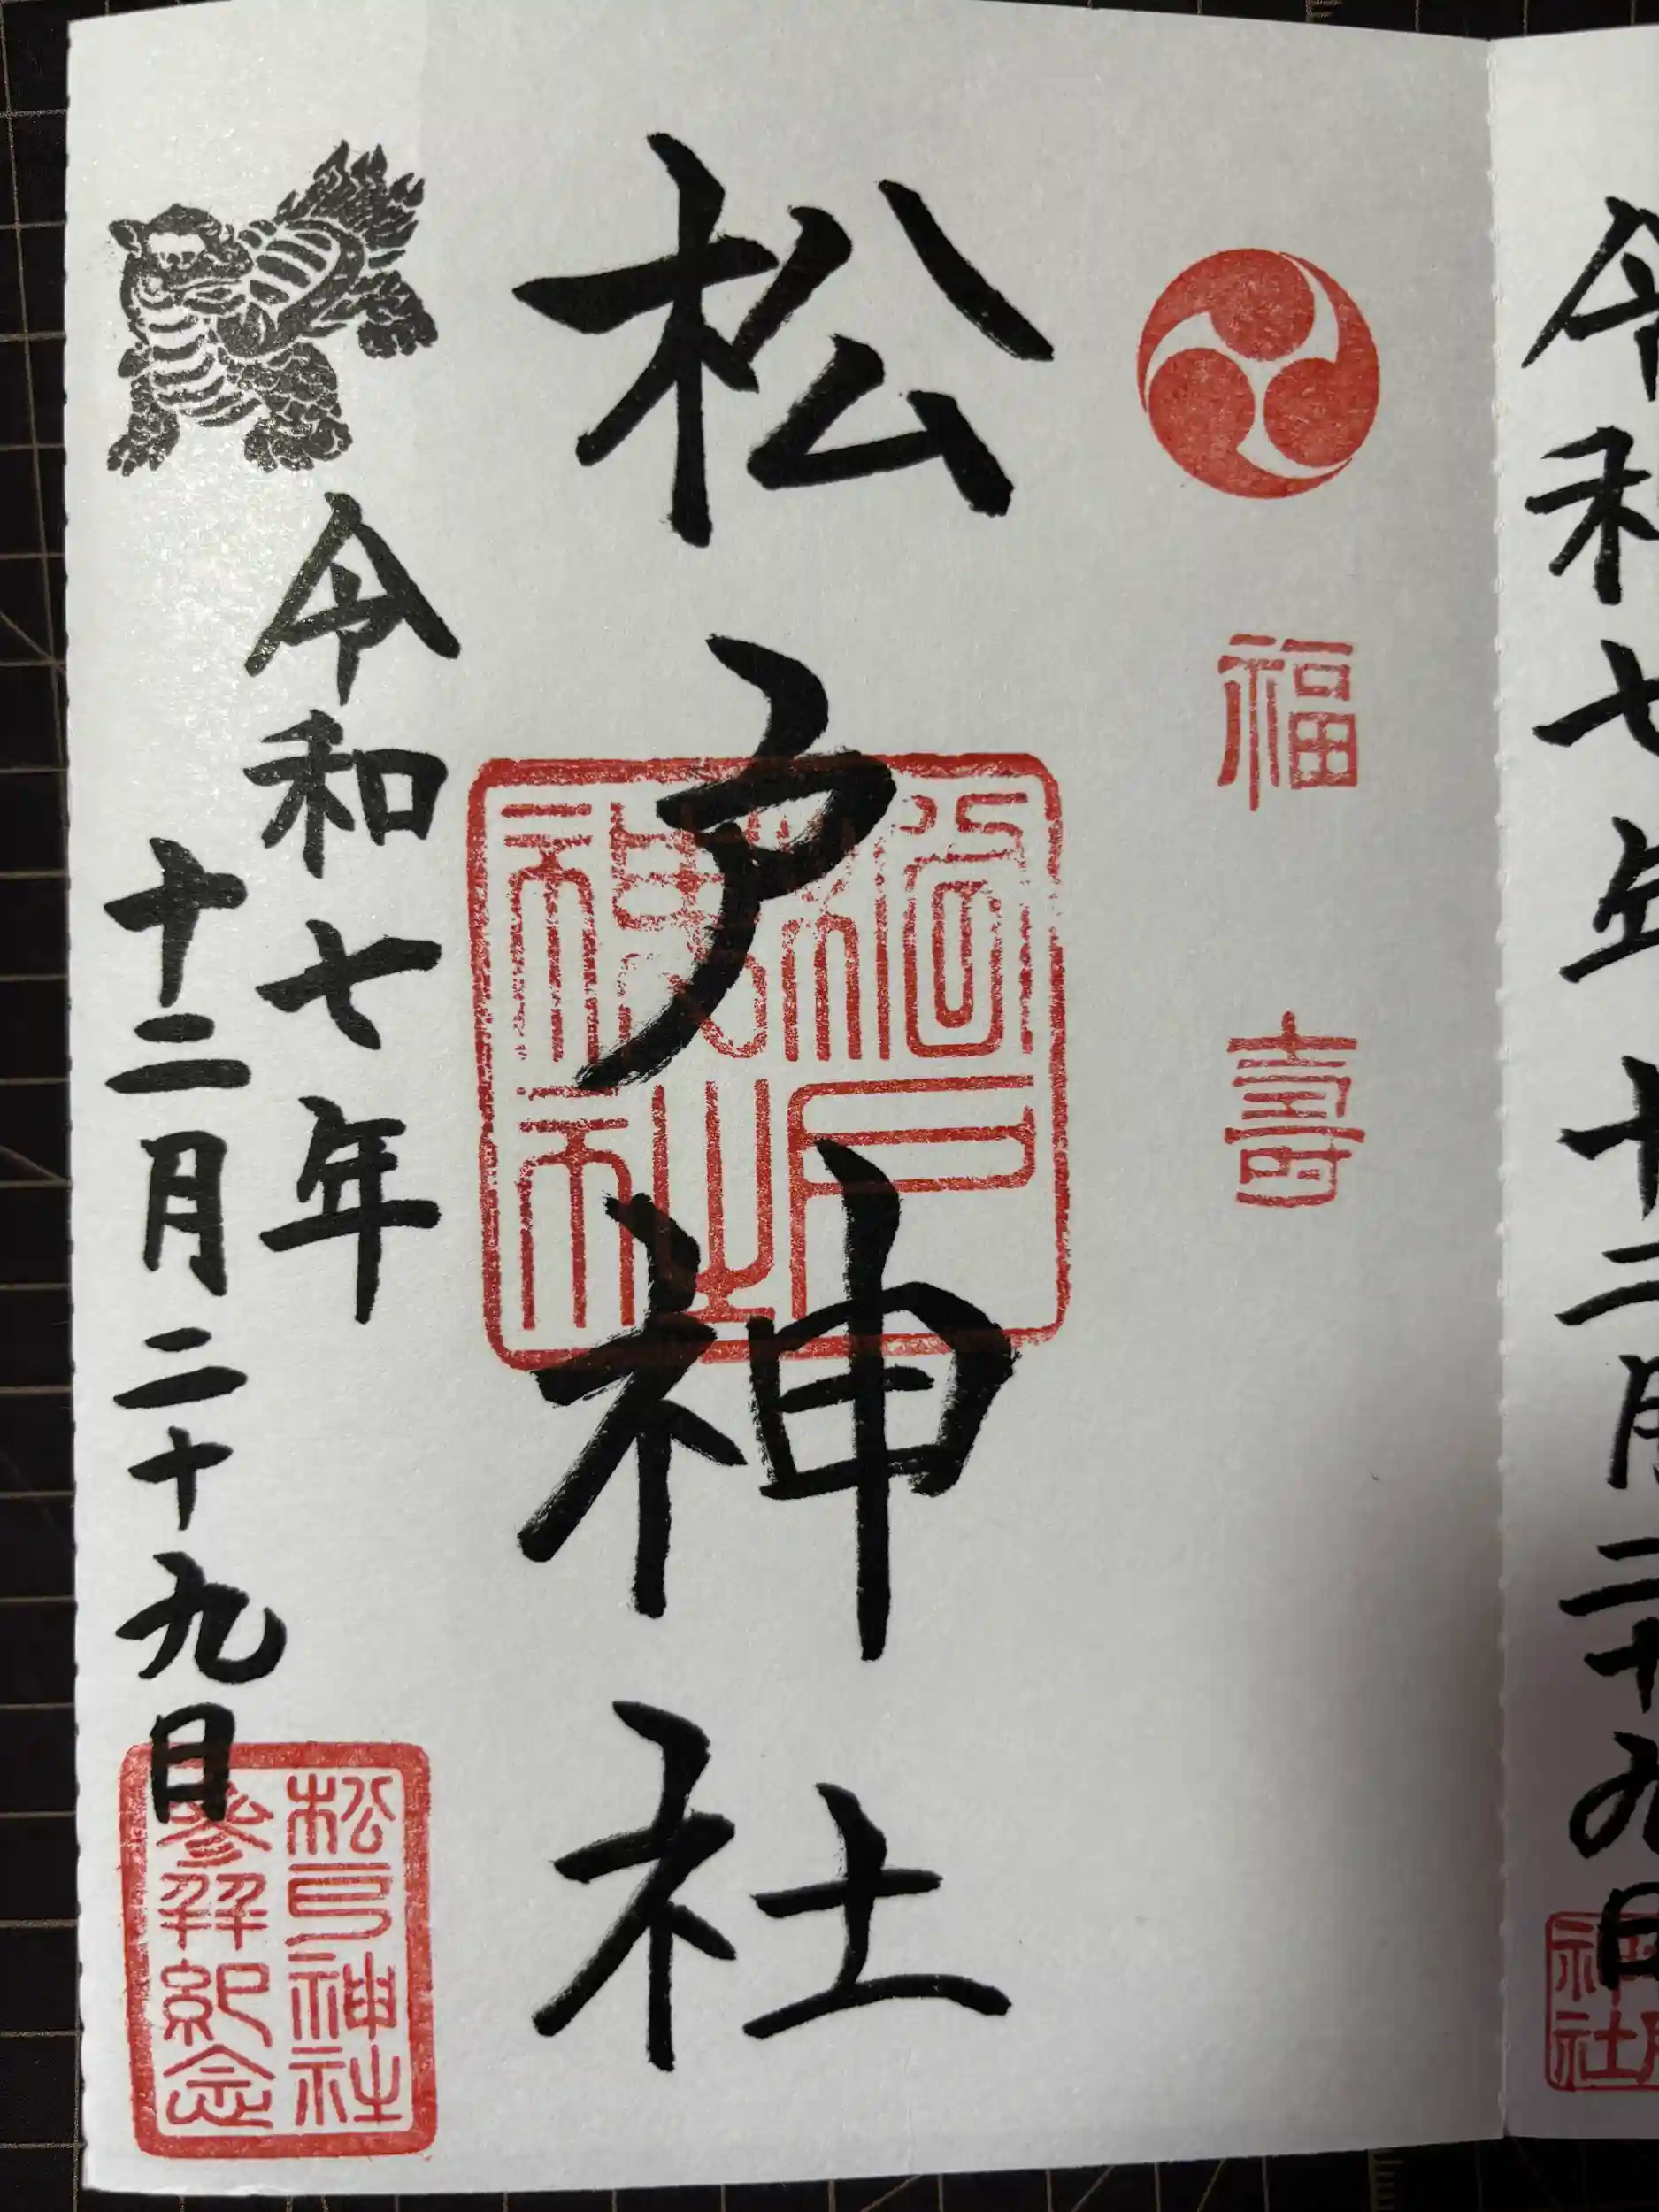 令和七年十二月二十九日
神社
福壽
松戸神社
松戸神社
令和七年
十二月二十九日
松戸神社
参拝紀念